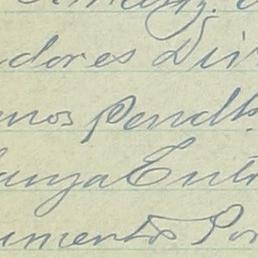 dores Div
nos Pendt
anza Entr
umento Por